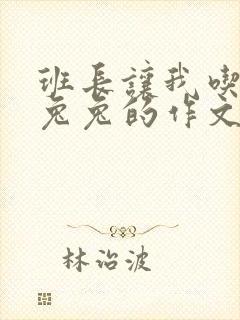 班长让我喫
兔兔的作文
林治波